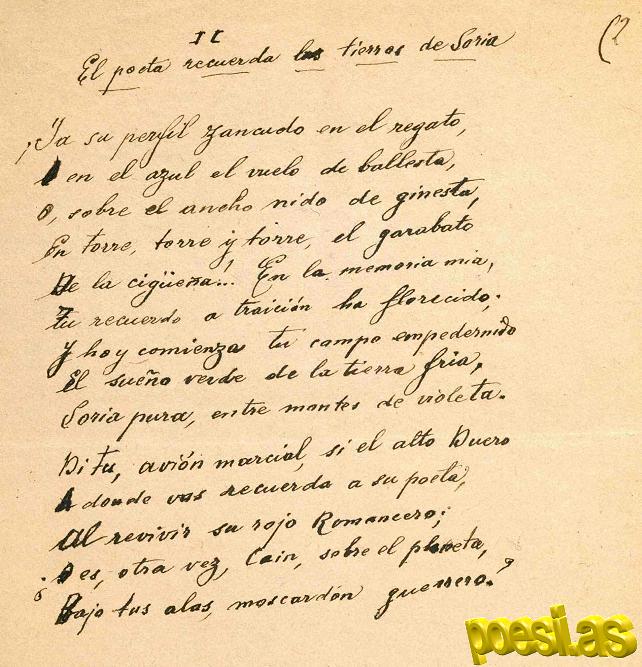 II
(2
El poeta recuerda las tierras de Soria
¡Ya su perfil zancudo en el regato,
en el azul el vuelo de ballesta,
o, sobre el ancho nido de ginesta,
En torre, torre y torre, el garabato
De la cigüeña!... En la memoria mia,
Tu recuerdo a traición ha florecido;
Y hoy comienza tu campo empedernido
El sueño verde de la tierra fria,
Soria pura, entre montes de violeta.
Di tu, avión marcial, si el alto Duero
A donde vas recuerda a su poeta,
Al revivir su rojo Romancero;
¿O es, otra vez, Cain, sobre el planeta,
Bajo tus alas, moscardón guerrero?
poesi.as